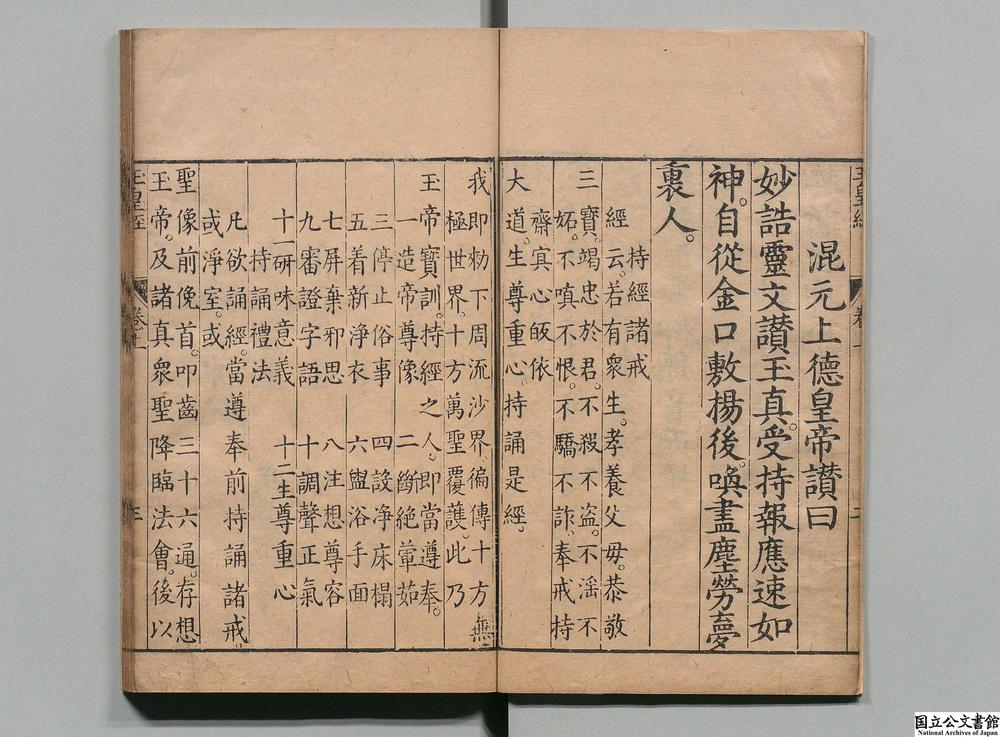 玉皇經
卷一
二
混元上德皇帝讃曰
妙誥靈文讃玉真。受持報應速如
神。自從金口敷揚後。喚盡塵勞夢
裏人。
持經諸戒
經云。若有衆生。孝養父毋。恭敬
三寶。竭忠於君。不殺不盜。不滛不
妬。不嗔不恨。不驕不詐。奉戒持
齋。宾心皈依
大道。生尊重心。持誦是經。
我即勑下周流沙界。徧傳十方無
極世界。十方萬聖覆䕶。此乃
玉帝寶訓。持經之人。即當遵奉。
一造帝尊像　二斷絶葷茹
三停止俗事　四設净床榻
五着新淨衣　六盥浴手面
七屏棄邪思　八注想尊容
九審證字語　十調聲正氣
十一研味意義　十二生尊重心
持誦禮法
凡欲誦經。當遵奉前持誦諸戒。
或淨室。或
聖像前俛首。叩齒三十六通。存想
玉帝。及諸真衆聖降臨法會。後以
玉皇經
三
国立公文書館
National Archives of Japan